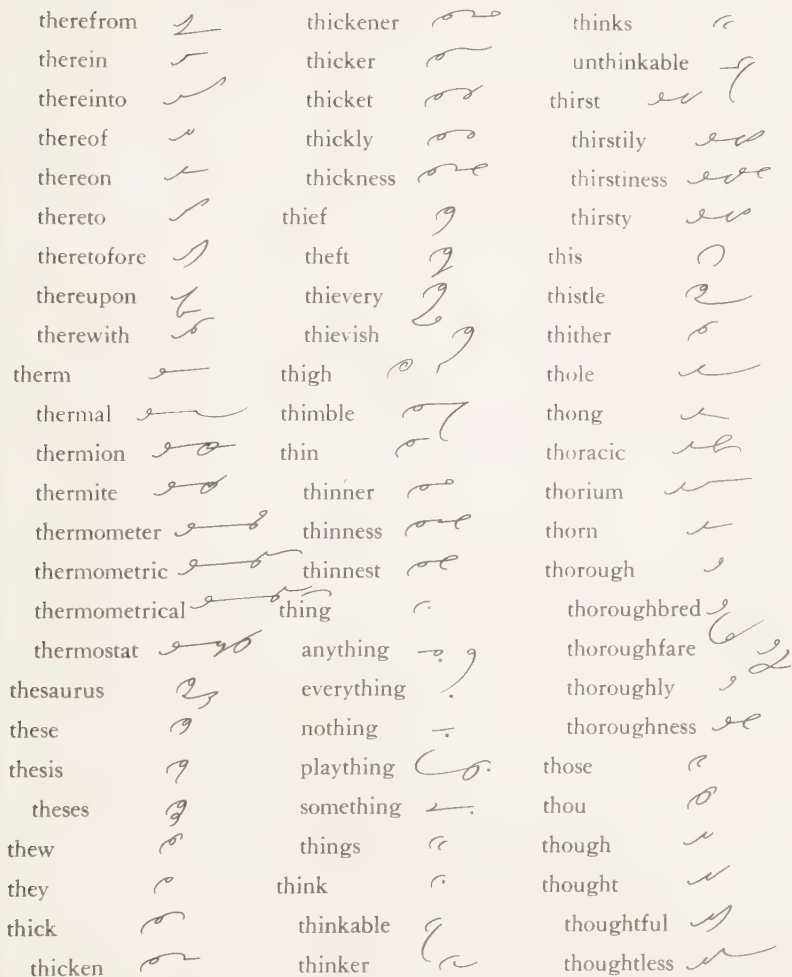 therefrom
therein
thereinto
thereof
thereon
thereto
theretofore
thereupon
therewith
therm
thermal
thermion
thermite
thermometer
thermometric
thermometrical
thermostat
thesaurus
these
thesis
theses
thew
they
thick
thicken
thickener
thicker
thicket
thickly
thickness
thief
theft
thievery
thievish
thigh
thimble
thin
thinner
thinness
thinnest
thing
anything
everything
nothing
plaything
something
things
think
thinkable
thinker
thinks
unthinkable
thirst
thirstily
thirstiness
thirsty
this
thistle
thither
thole
thong
thoracic
thorium
thorn
thorough
thoroughbred
thoroughfare
thoroughly
thoroughness
those
thou
though
thought
thoughtful
thoughtless